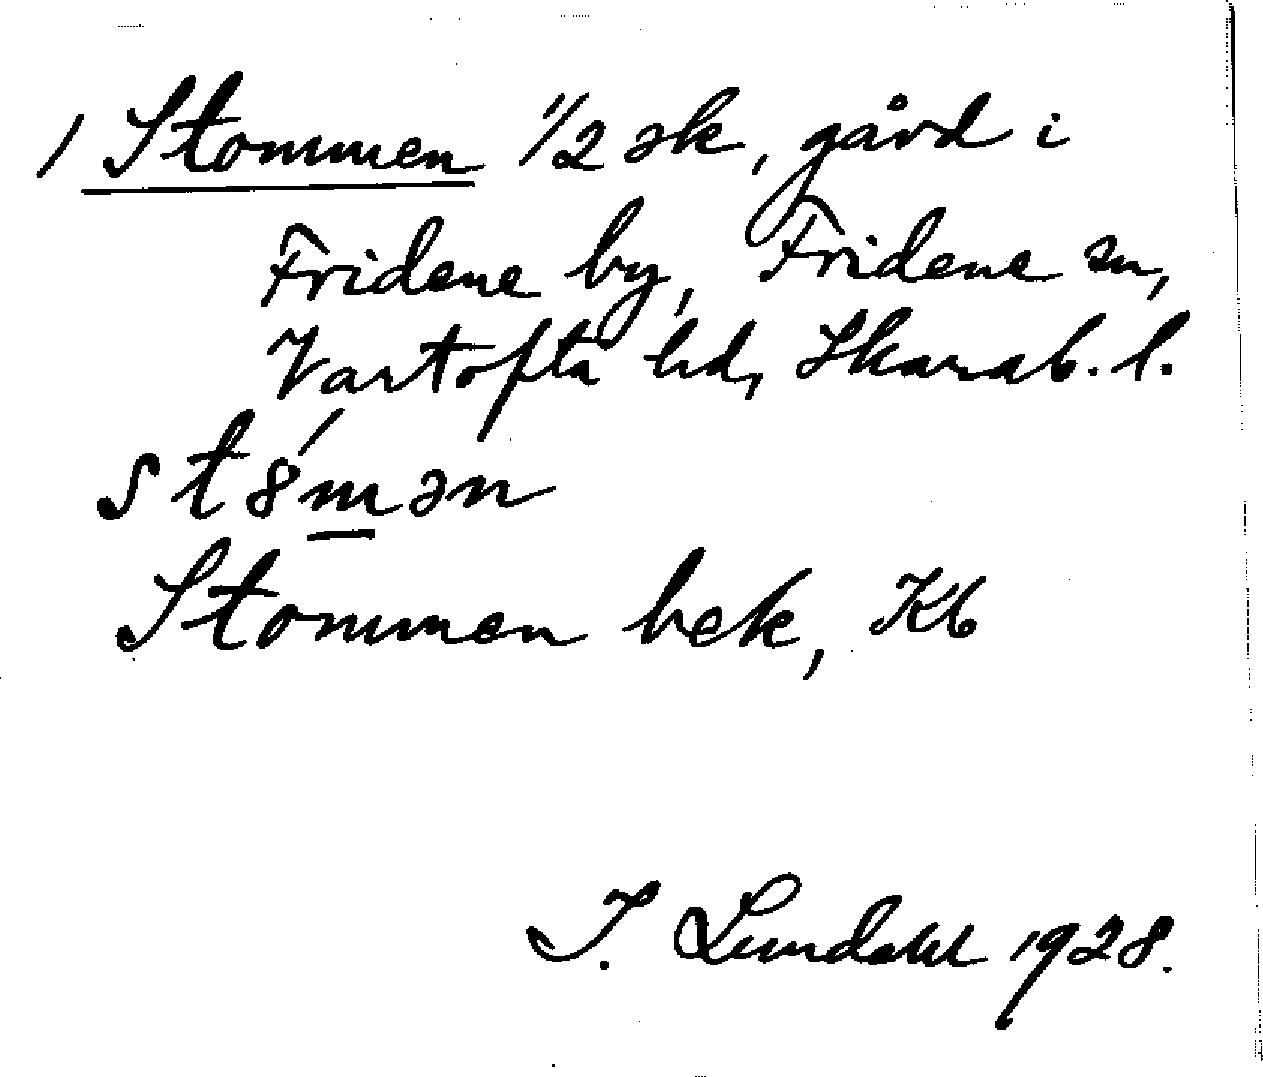 / Stommen 1/2 sk, gård i
Fridene by, Fridene sn,
Vartofta hd, Skarab. l.
st8́mən
Stommen bek, Kb
I. Lundahl 1928.